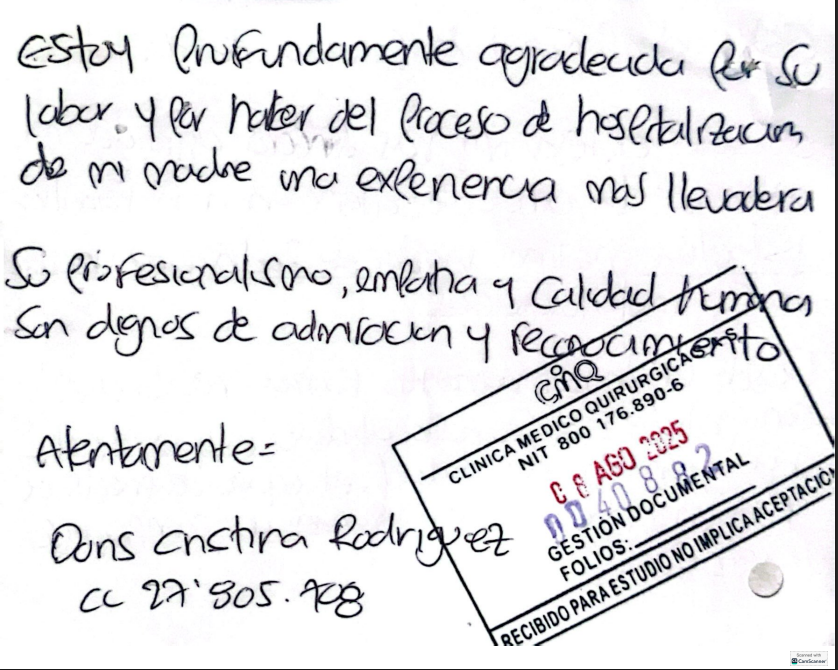 Estoy profundamente agradecida por su
labor. y por haber del proceso de hospitalizacion
de mi madre una experiencia mas llevadera
Su profesionalismo, empatia y calidad humana
son dignos de admiracion y reconocimiento
Atentamente=
Doris Cristina Rodriguez
CC 27'805.708
CMQ
CLINICA MEDICO QUIRURGICA S.A.S
NIT 800 176.890-6
0 8 AGO 2025
0040882
GESTIÓN DOCUMENTAL
FOLIOS:
RECIBIDO PARA ESTUDIO NO IMPLICA ACEPTACIÓN
Scanned with
CamScanner